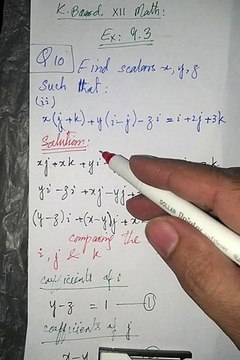 K-Board, XII Math:
Ex: 9.3
Q10: Find scalars x, y, z
Such that:
(ii)
x(j+k)+y(i-j)-zi=i+2j+3k
Solution:
xj+xk+yi
yi-zi+xj-yj+
(y-z)i+(x-y)j+x
comparing the
i, j & k
coefficients of i
y-z = 1 — ①
coefficients of j
x-y
DOLLAR Pointer